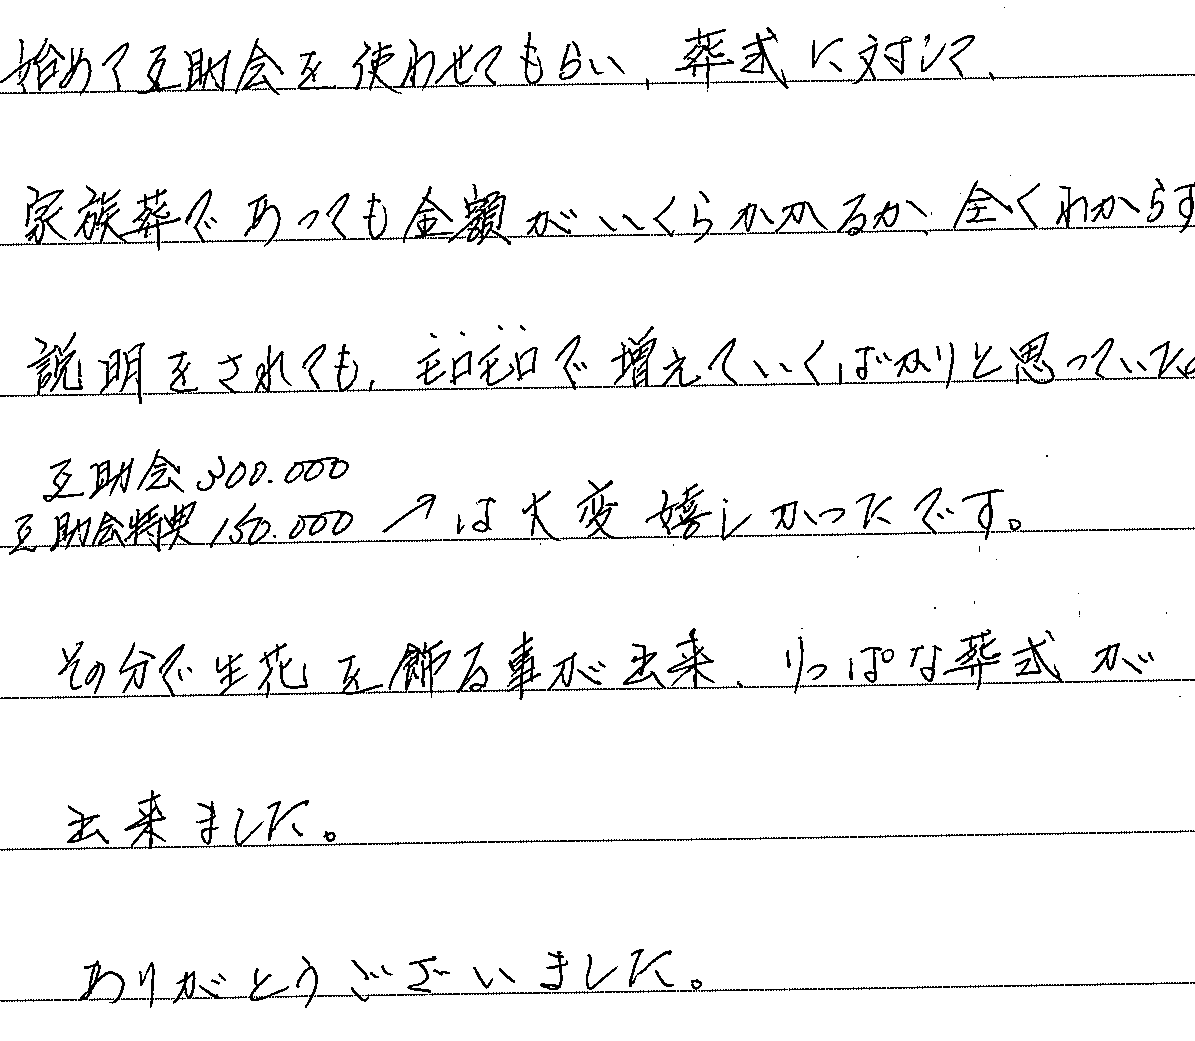 始めて互助会を使わせてもらい、葬式に対して、
家族葬であっても金額がいくらかかるか、全くわからず
説明をされても、モロモロで増えていくばかりと思っていた。
互助会 300.000
互助会特典 150.000 ↗は大変嬉しかったです。
その分で生花を飾る事が出来、りっぱな葬式が
出来ました。
ありがとうございました。